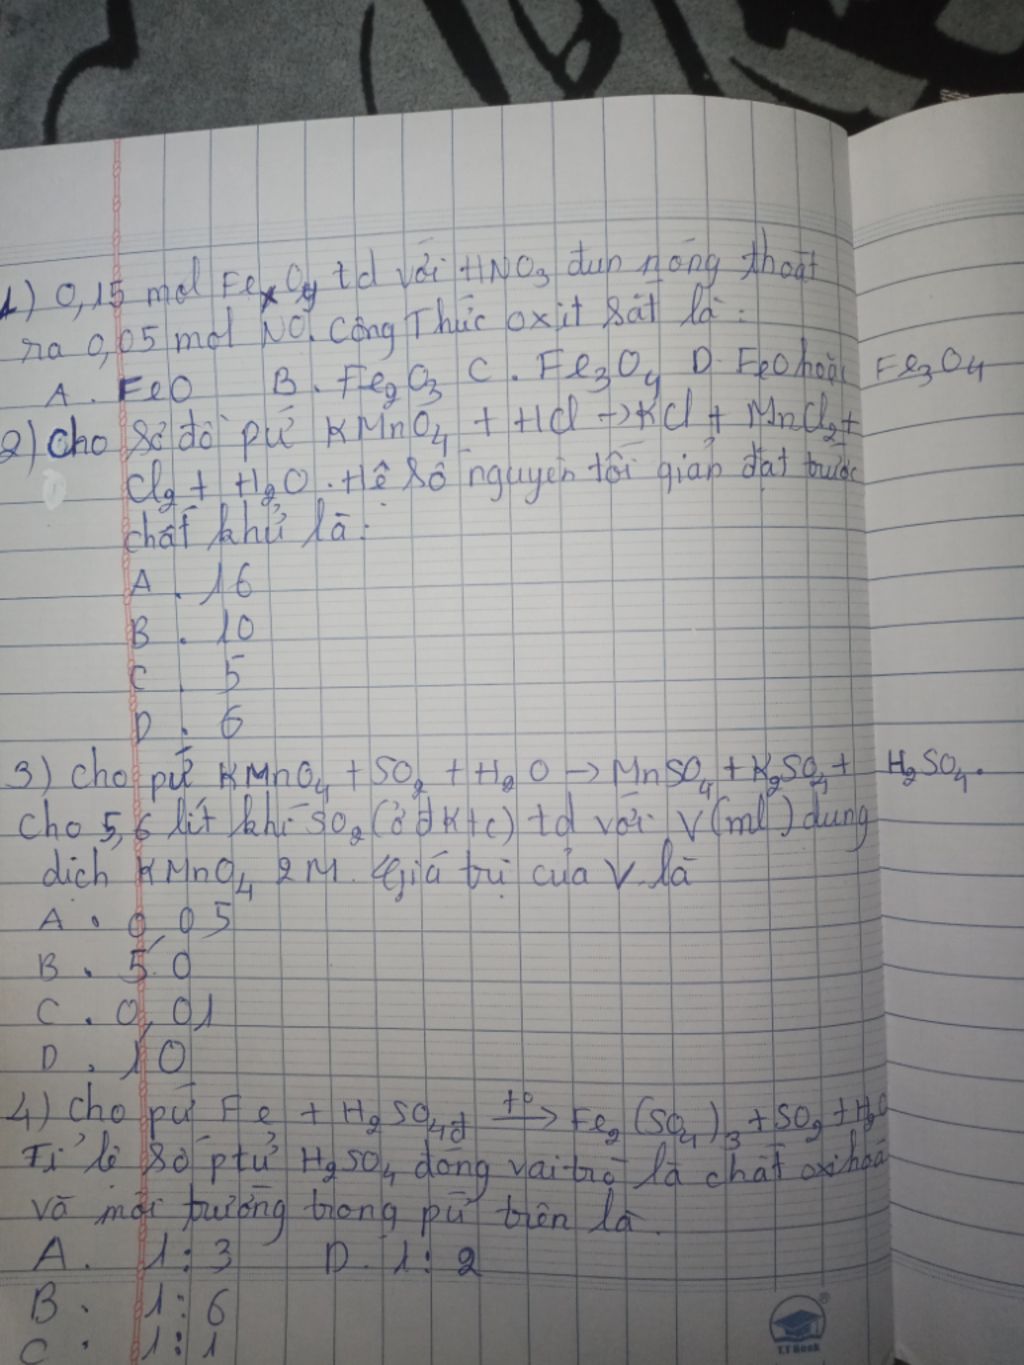 1) 0,15 mol FexOy td với HNO3 đun nóng thoát
ra 0,05 mol NO. Công Thức oxit sắt là :
A. FeO B. Fe2O3 C. Fe3O4 D. FeO hoặc Fe3O4
2) Cho sơ đồ pứ KMnO4 + HCl → KCl + MnCl2 +
Cl2 + H2O. Hệ số nguyên tối giản đặt trước
chất khử là :
A. 16
B. 10
C. 5
D. 6
3) Cho pứ KMnO4 + SO2 + H2O → MnSO4 + K2SO4 + H2SO4.
Cho 5,6 lít khí SO2 (ở đktc) td với V(ml) dung
dịch KMnO4 2M. Giá trị của V là
A. 0,05
B. 50
C. 0,01
D. 10
4) Cho pứ Fe + H2SO4 đ t° → Fe2(SO4)3 + SO2 + H2O
Tỉ lệ số ptử H2SO4 đóng vai trò là chất oxi hoá
và môi trường trong pứ trên là.
A. 1 : 3 D. 1 : 2
B. 1 : 6
C. 1 : 1
T.T Book